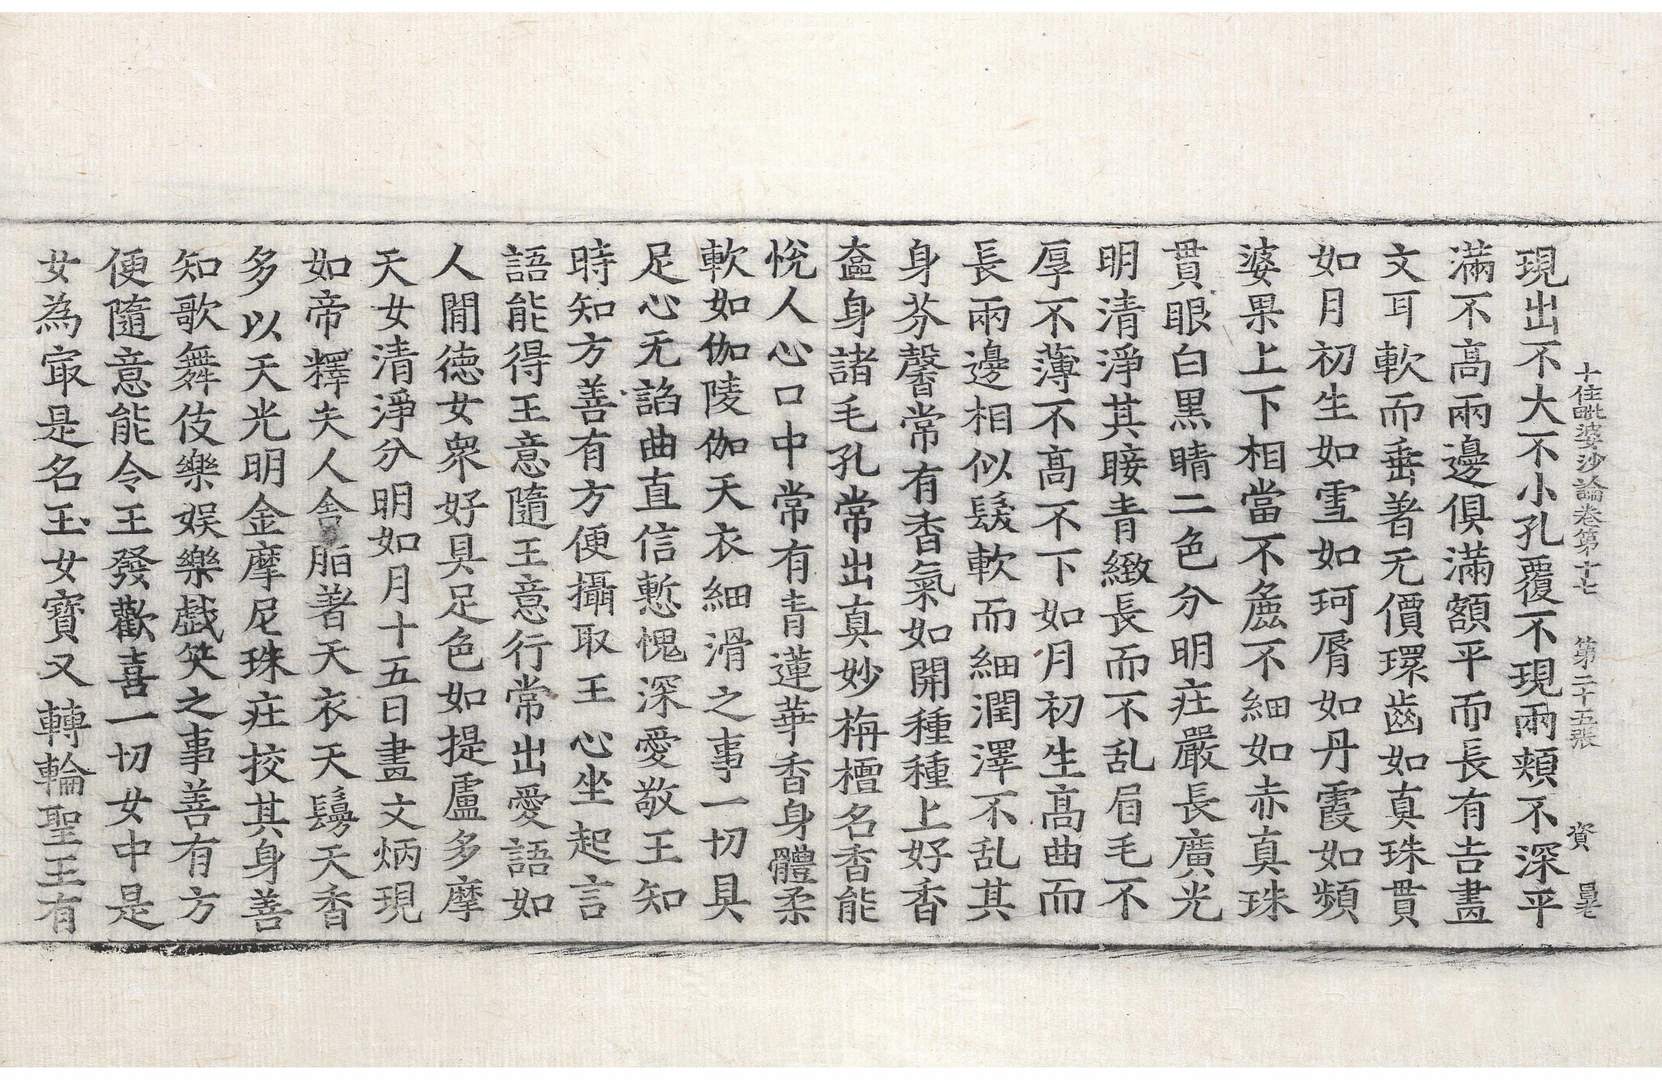 十住毗婆沙論卷第十七 第二十五張 資
現出不大不小孔覆不現兩頰不深平
滿不高兩邊俱滿額平而長有吉畫
文耳軟而垂著无價環齒如真珠貫
如月初生如雪如珂脣如丹霞如頻
婆果上下相當不麁不細如赤真珠
貫眼白黑睛二色分明庄嚴長廣光
明清淨其睫青緻長而不乱眉毛不
厚不薄不高不下如月初生高曲而
長兩邊相似髮軟而細潤澤不乱其
身芬馨常有香氣如開種種上好香
奩身諸毛孔常出真妙栴檀名香能
悅人心口中常有青蓮華香身體柔
軟如伽陵伽天衣細滑之事一切具
足心无諂曲直信慙愧深愛敬王知
時知方善有方便攝取王心坐起言
語能得王意隨王意行常出愛語如
人間德女衆好具足色如提盧多摩
天女清淨分明如月十五日畫文炳現
如帝釋夫人舍脂著天衣天鬘天香
多以天光明金摩尼珠庄挍其身善
知歌舞伎樂娛樂戲笑之事善有方
便隨意能令王發歡喜一切女中是
女為㝡是名玉女寶又轉輪聖王有